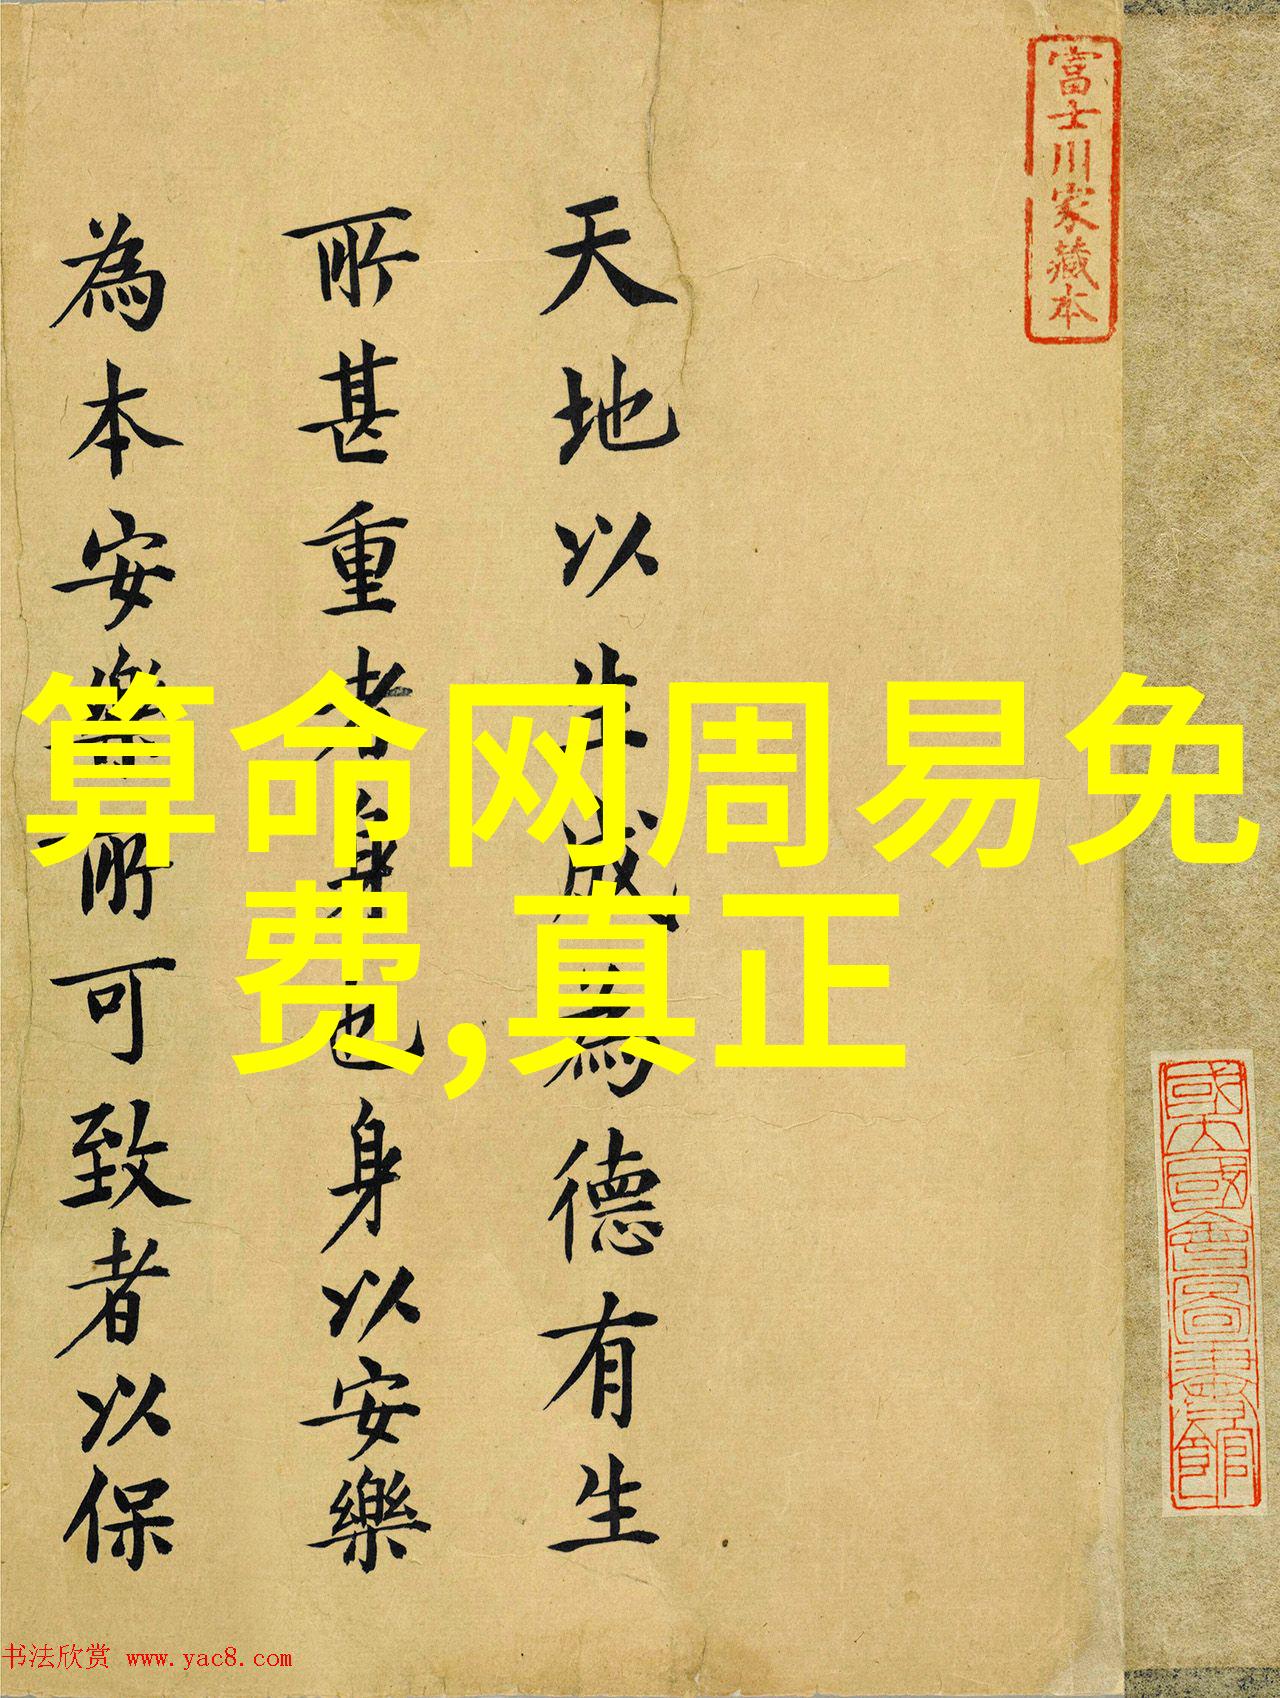 富士川家藏本
國立國會圖書館
天地以生成為德有生
所甚重者身也身以安樂
為本安樂所可致者以保
算命网周易免
费,真正
书法欣赏 www.yac8.com